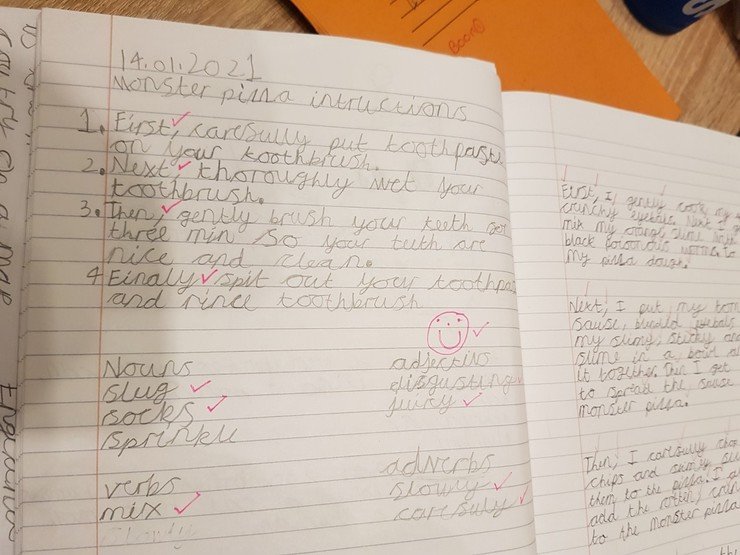 14.01.2021
Monster pizza intructions
1. First, carefully put toothpaste
on your toothbrush.
2. Next thoroughly wet your
toothbrush.
3. Then, gently brush your teeth for
three min so your tuth are
nice and clean.
4 Finally spit out your toothpas
and rince toothbrush
Nouns
slug
socks
sprinkle
verbs
mix
adjectivs
disgusting
juicy
adverbs
slowly
carefuly
First, I gently cook my
crunchy eyebals. Next I
mix my orange slime with
black poisonous worms to
my pizza dough.
Next, I put my tom
sause, blended eyebals
my slimy, sticky and
slime in a bowl a
it together. Then I get
to spread the sause
monster pizza.
Then, I carefully chop
chips and
them to the pizza. I a
add the rotten,
to the monster pizza